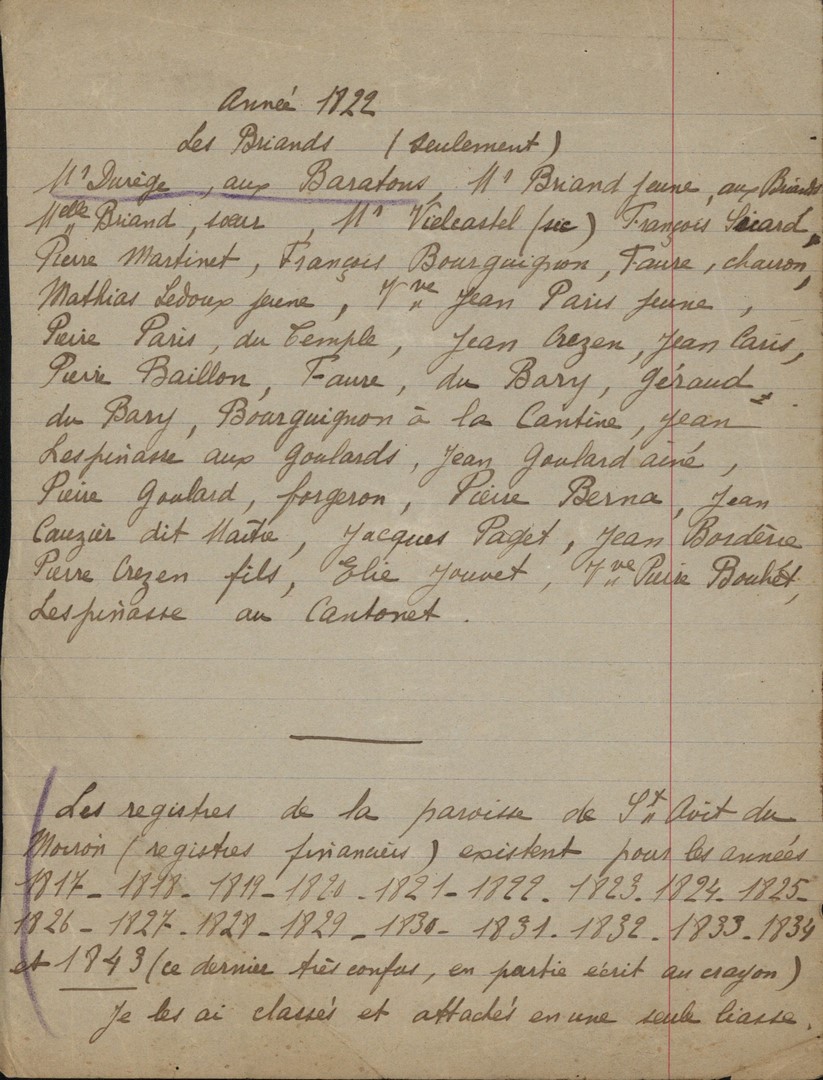 Année 1822
Les Briands (seulement)
Mr Durège, aux Baratons, Mr Briand jeune, aux Briands
Melle Briand, sœur, Mr Vielcastel (sic) François Sicard,
Pierre Martinet, François Bourguignon, Faure, charron,
Mathias Ledoux jeune, Vve Jean Paris jeune,
Pierre Paris, du Temple, Jean Crezen, Jean Caris,
Pierre Baillon, Faure, du Bary, Géraud
du Bary, Bourguignon à la Cantine, Jean
Lespinasse aux Goulards, Jean Goulard ainé,
Pierre Goulard, forgeron, Pierre Berna, Jean
Cauzier dit Maître, Jacques Paget, Jean Borderie
Pierre Crezen fils, Elie Jouvet, Vve Pierre Bouhet,
Lespinasse au Cantonet.
Les registres de la paroisse de St Avit du
Moiron (registres financiers) existent pour les années
1817 - 1818 - 1819 - 1820 - 1821 - 1822 - 1823 - 1824 - 1825 -
1826 - 1827 - 1828 - 1829 - 1830 - 1831 - 1832 - 1833 - 1834
et 1843 (ce dernier très confus, en partie écrit au crayon)
Je les ai classés et attachés en une seule liasse.